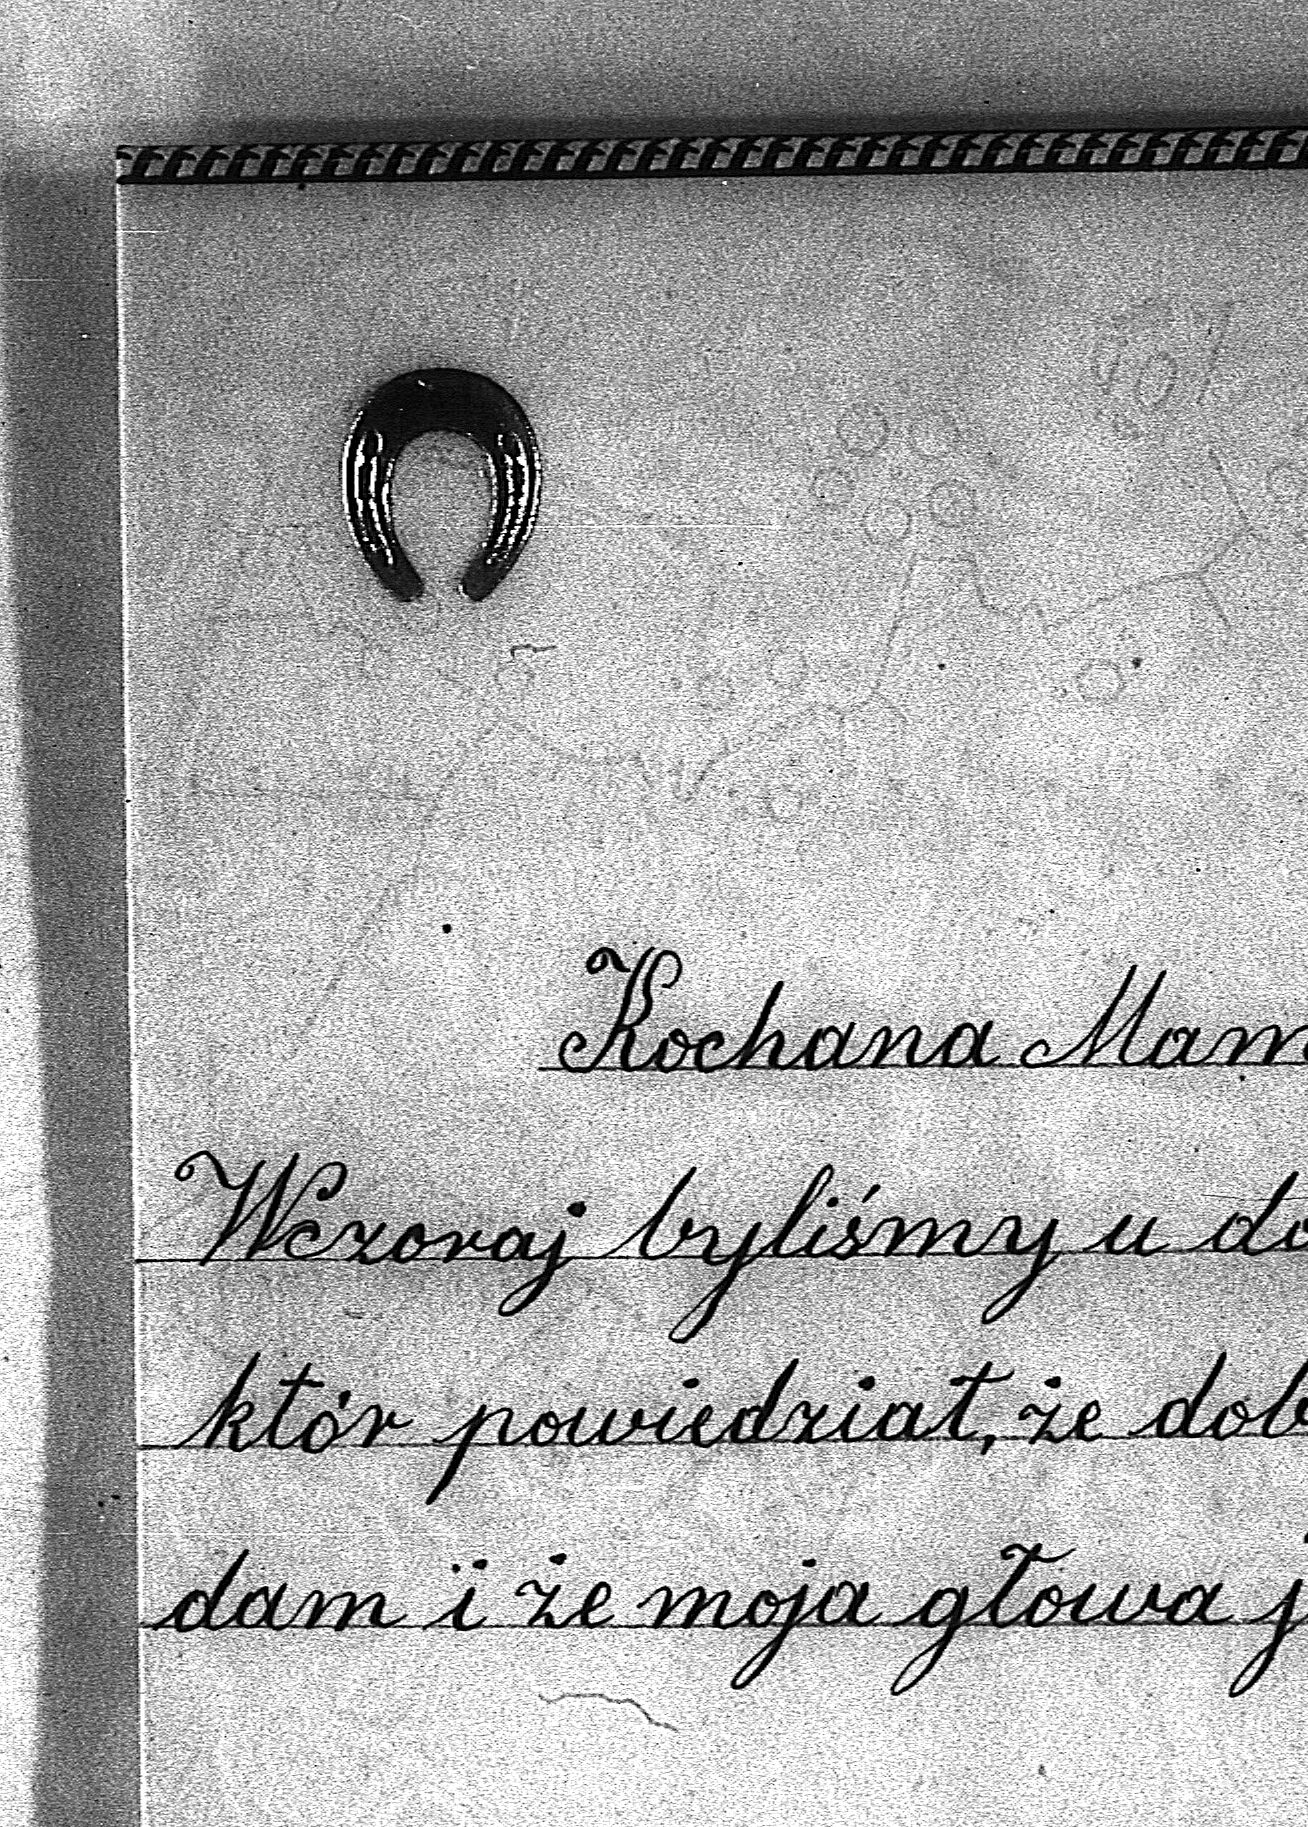 Kochana Mam
Wczoraj byliśmy u do
któr powiedział, że dob
dam i że moja głowa j